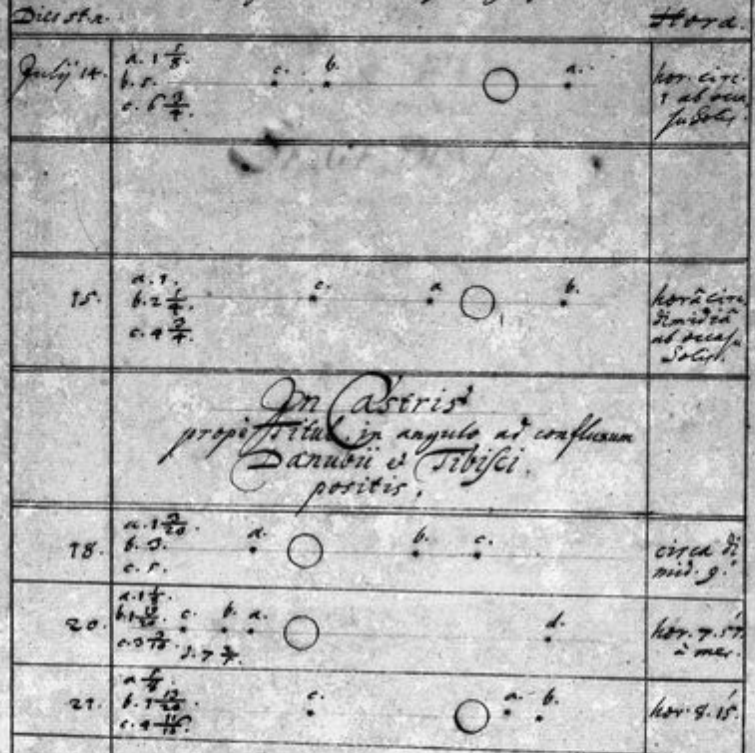 Dies st. n.
Hora.
Julij 14.
a. 1 5/8.
b. 5.
c. 6 3/4.
c. b. a.
hor. circ.
1 ab occa
su Solis.
15.
a. 1.
b. 2 1/4.
c. 4 3/4.
c. a b.
horâ circ.
dimidiâ
ab occasu
Solis.
In Castris
prope Titul in angulo ad confluxum
Danubii et Tibisci
positis.
18.
b. 3.
c. 5.
a. b. c.
circa di
mid. 9.
20.
c. b. a. d.
hor. 7. 57.
à mer.
21.
c. a. b.
hor. 8. 15.